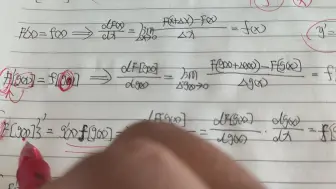 F'(x) = f(x) ⟹ dF(x)/dx = lim Δx→0 F(x+Δx)-F(x)/Δx = f(x)
F'[g(x)] = f[g(x)] ⟹ dF[g(x)]/dg(x) = lim Δg(x)→0 F[g(x)+Δg(x)]-F[g(x)]/Δg(x) = f
{F[g(x)]}' = g'(x) f[g(x)] = dF[g(x)] = dF[g(x)]/dg(x) · dg(x)/dx = f[g